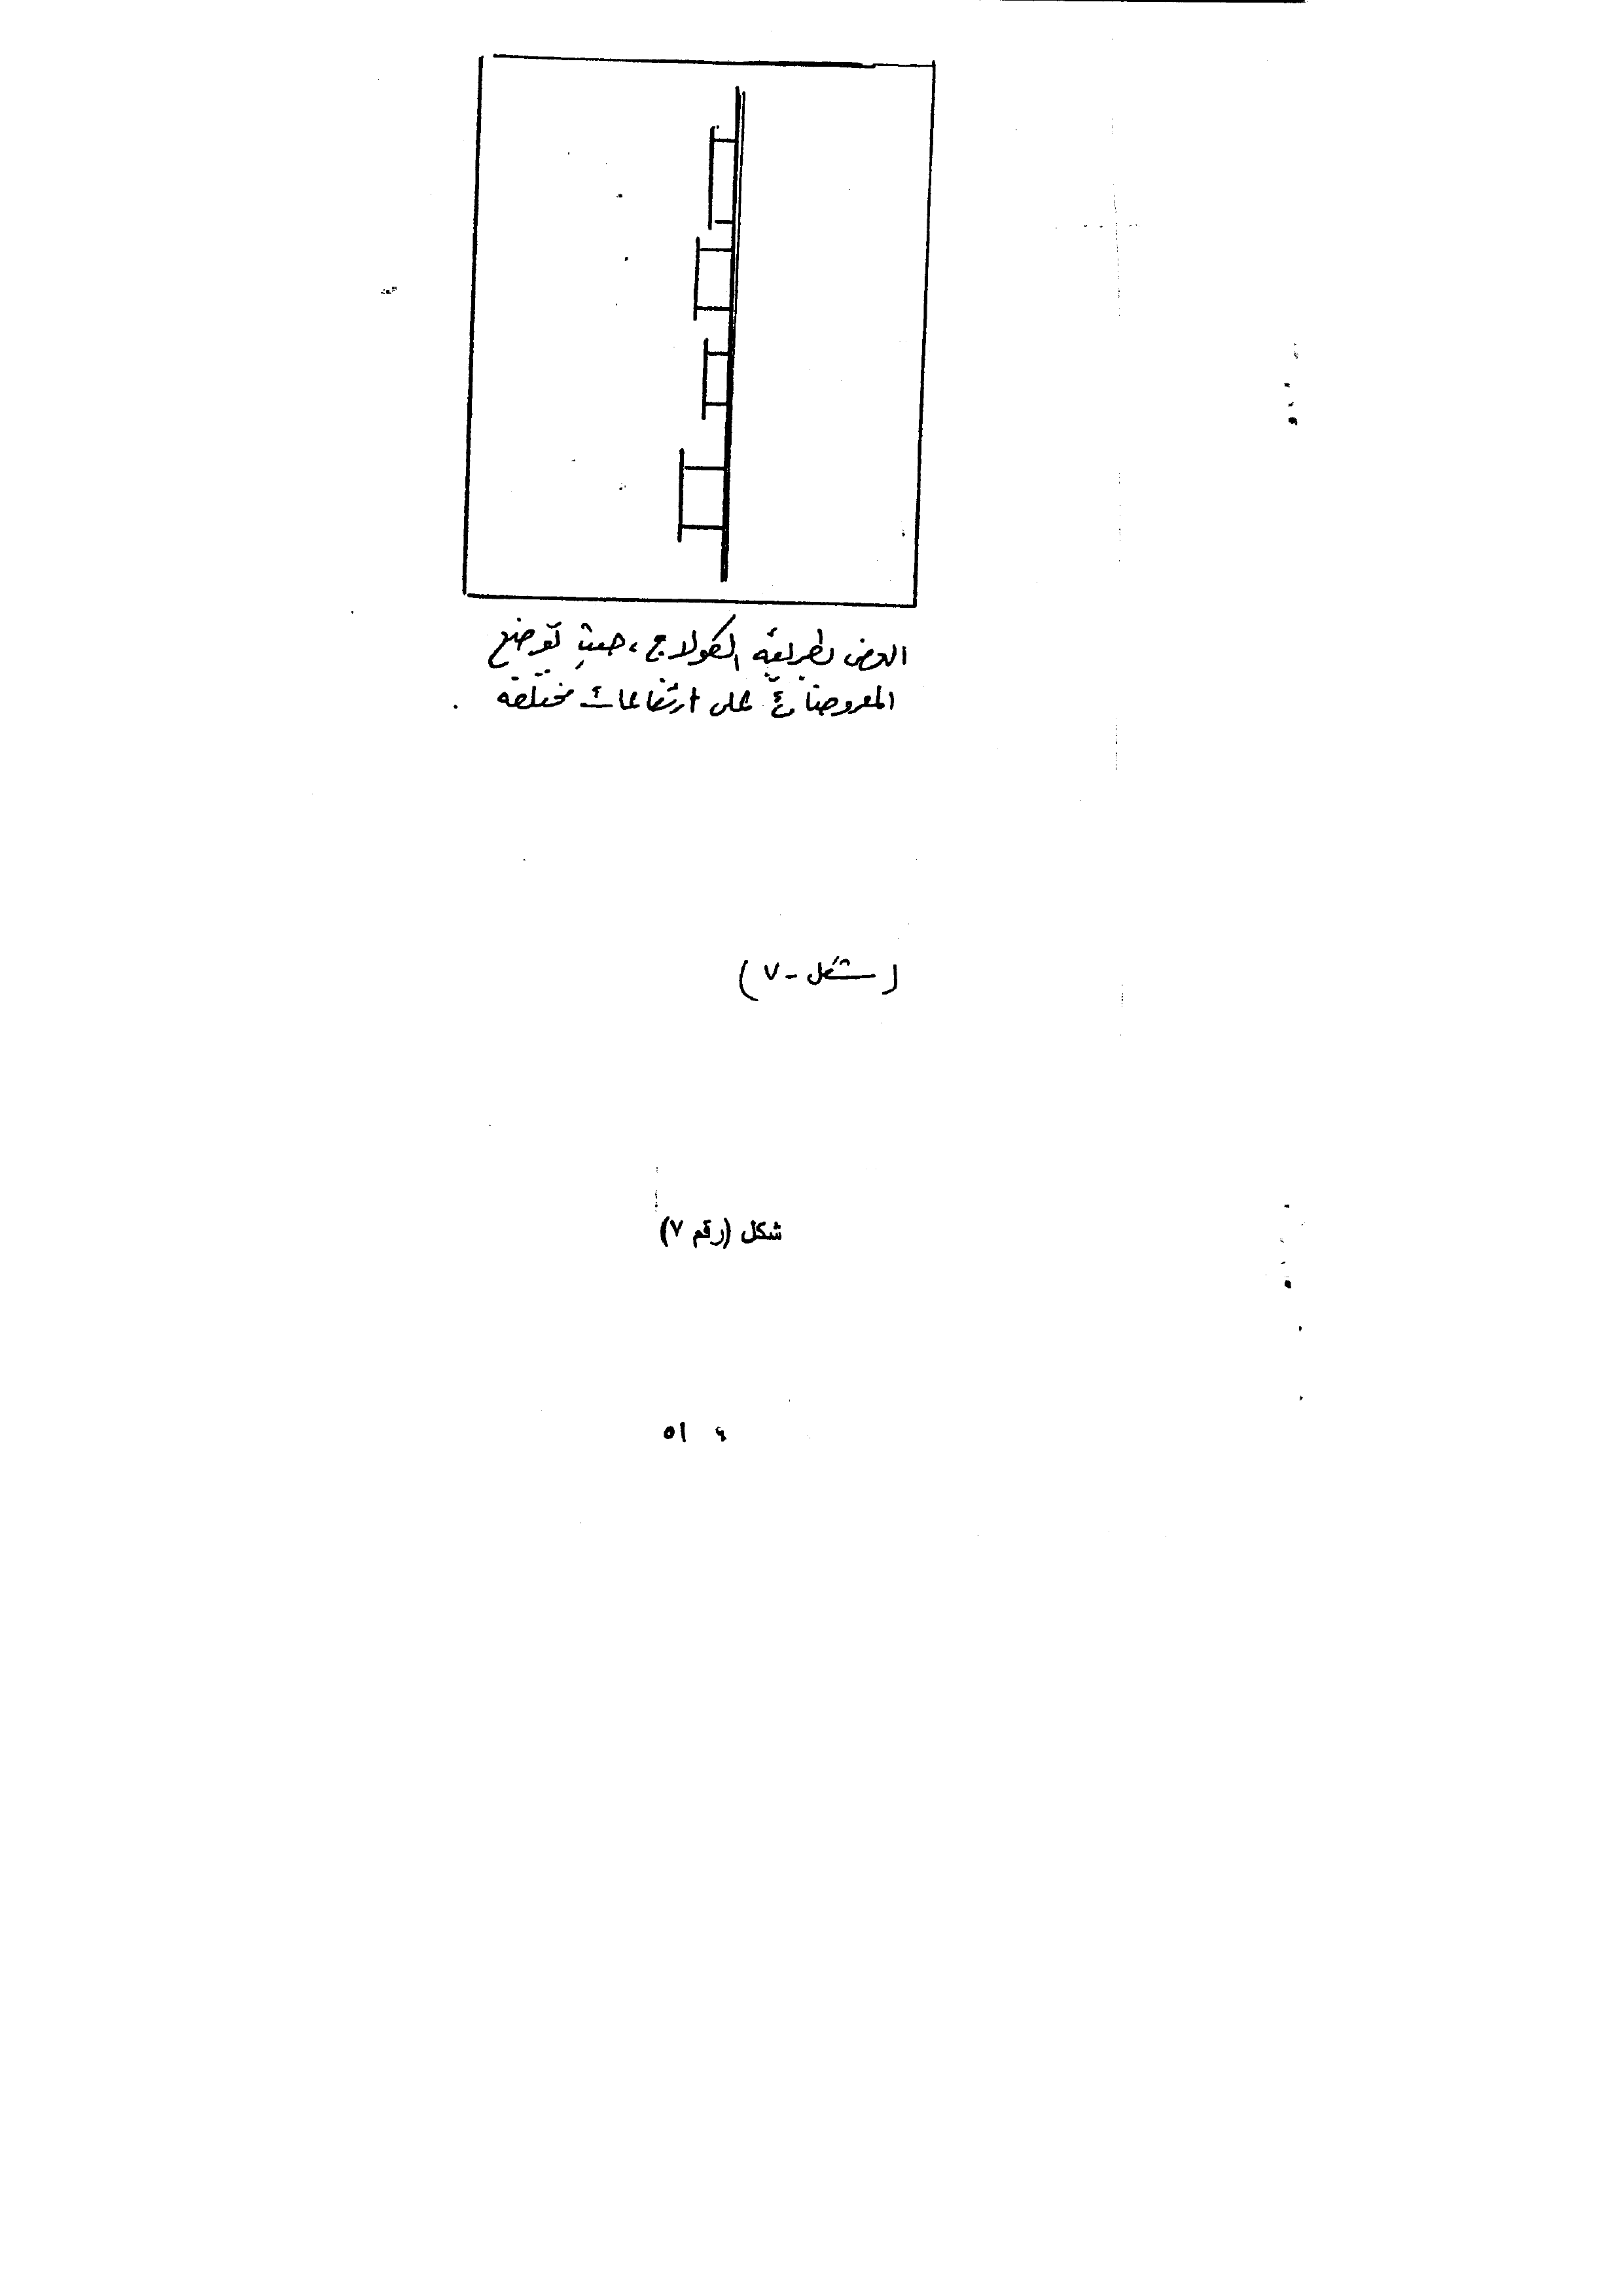 العرض بطريقة الكولاج، حيث توضع
المعروضات على ارتفاعات مختلفه .
(شكل - ٧)
شكل (رقم ٧)
٥١